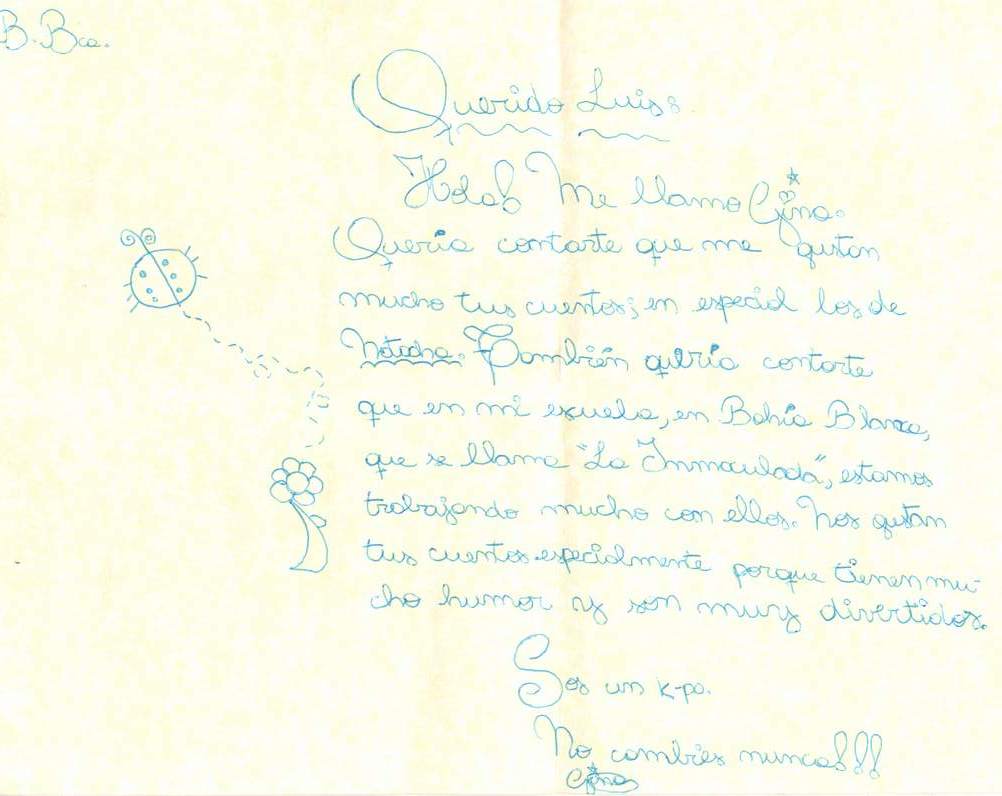 B. Bca.
Querido Luis:
Hola! Me llamo Gina.
Quería contarte que me gustan
mucho tus cuentos; en especial los de
Natacha. También quería contarte
que en mi escuela, en Bahía Blanca,
que se llama "La Inmaculada", estamos
trabajando mucho con ellos. Nos gustan
tus cuentos especialmente porque tienen mu-
cho humor y son muy divertidos.
Sos un K-po.
No cambies nunca!!!
Gina